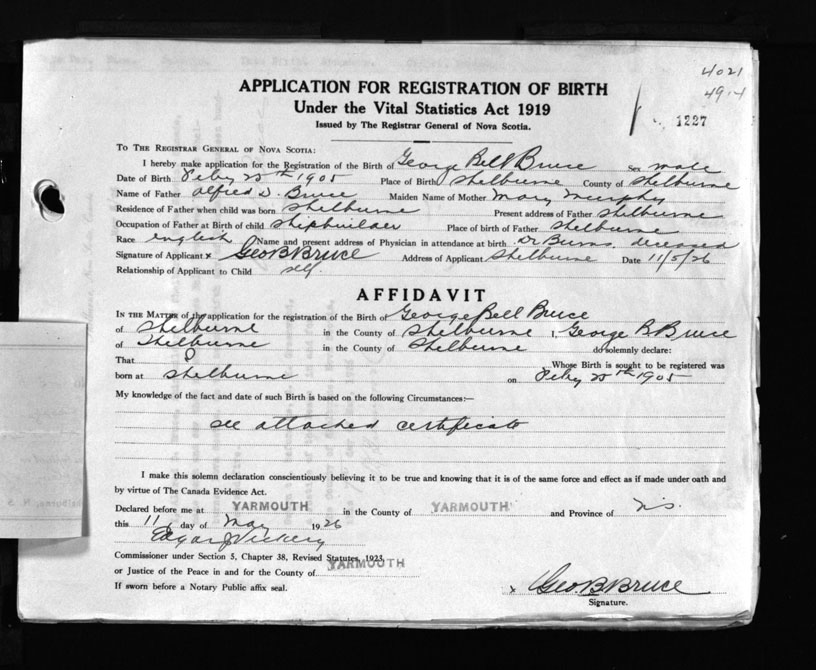 4021
4914
APPLICATION FOR REGISTRATION OF BIRTH
Under the Vital Statistics Act 1919
Issued by The Registrar General of Nova Scotia.
1227
TO THE REGISTRAR GENERAL OF NOVA SCOTIA:
I hereby make application for the Registration of the Birth of George Bell Bruce Sex male
Date of Birth Feby 25th 1905 Place of Birth Shelburne County of Shelburne
Name of Father Alfred D. Bruce Maiden Name of Mother Mary Murphy
Residence of Father when child was born Shelburne Present address of Father Shelburne
Occupation of Father at Birth of child Shipbuilder Place of birth of Father Shelburne
Race english Name and present address of Physician in attendance at birth Dr Burns, deceased
Signature of Applicant x Geo B Bruce Address of Applicant Shelburne Date 11/5/26
Relationship of Applicant to Child self
AFFIDAVIT
IN THE MATTER of the application for the registration of the Birth of George Bell Bruce
of Shelburne in the County of Shelburne I, George B Bruce
of Shelburne in the County of Shelburne do solemnly declare:
That I Whose Birth is sought to be registered was
born at Shelburne on Feby 25th 1905
My knowledge of the fact and date of such Birth is based on the following Circumstances:—
see attached certificate
I make this solemn declaration conscientiously believing it to be true and knowing that it is of the same force and effect as if made under oath and
by virtue of The Canada Evidence Act.
Declared before me at YARMOUTH in the County of YARMOUTH and Province of N.S.
this 11 day of May 1926
Edgar J Vickery
Commissioner under Section 5, Chapter 38, Revised Statutes, 1923
or Justice of the Peace in and for the County of YARMOUTH
If sworn before a Notary Public affix seal.
x Geo B Bruce
Signature.